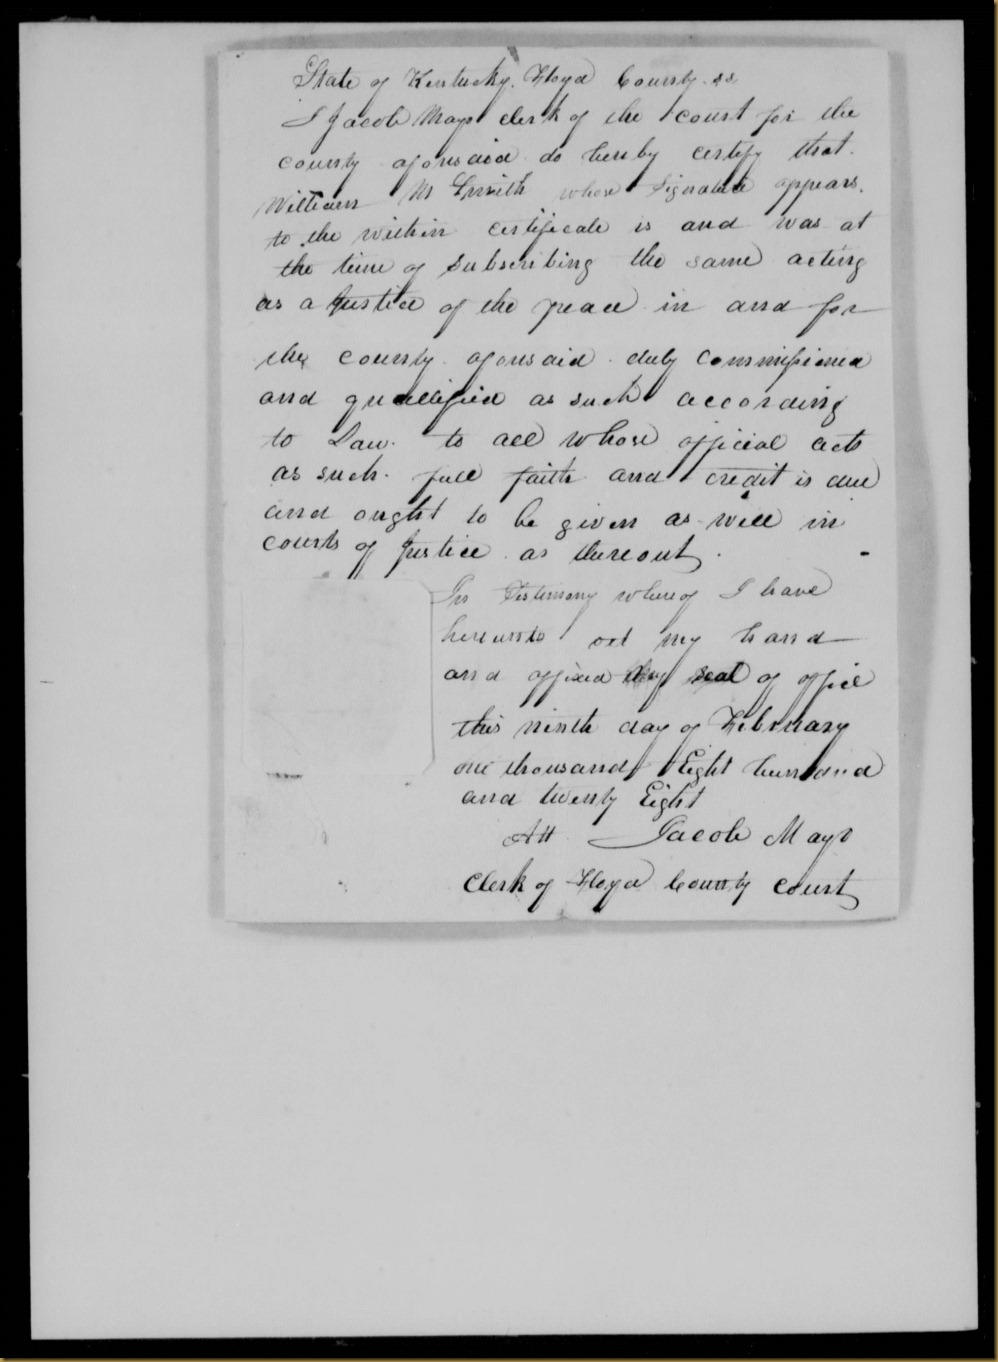 State of Kentucky. Floyd County. ss
I Jacob Mayo Clerk of the court for the
county aforesaid do hereby certify that.
William M Smith whose Signature appears.
to the within certificate is and was at
the time of Subscribing the same acting
as a Justice of the peace in and for
the county aforesaid duly Commissioned
and quallified as such according
to Law. to all whose official acts
as such. full faith and credit is due
and ought to be given as well in
courts of Justice as thereout.
In Testimony whereof I have
hereunto set my hand
and affixed my seal of office
this ninth day of February
one thousand Eight hundred
and twenty Eight
Att Jacob Mayo
Clerk of Floyd County court